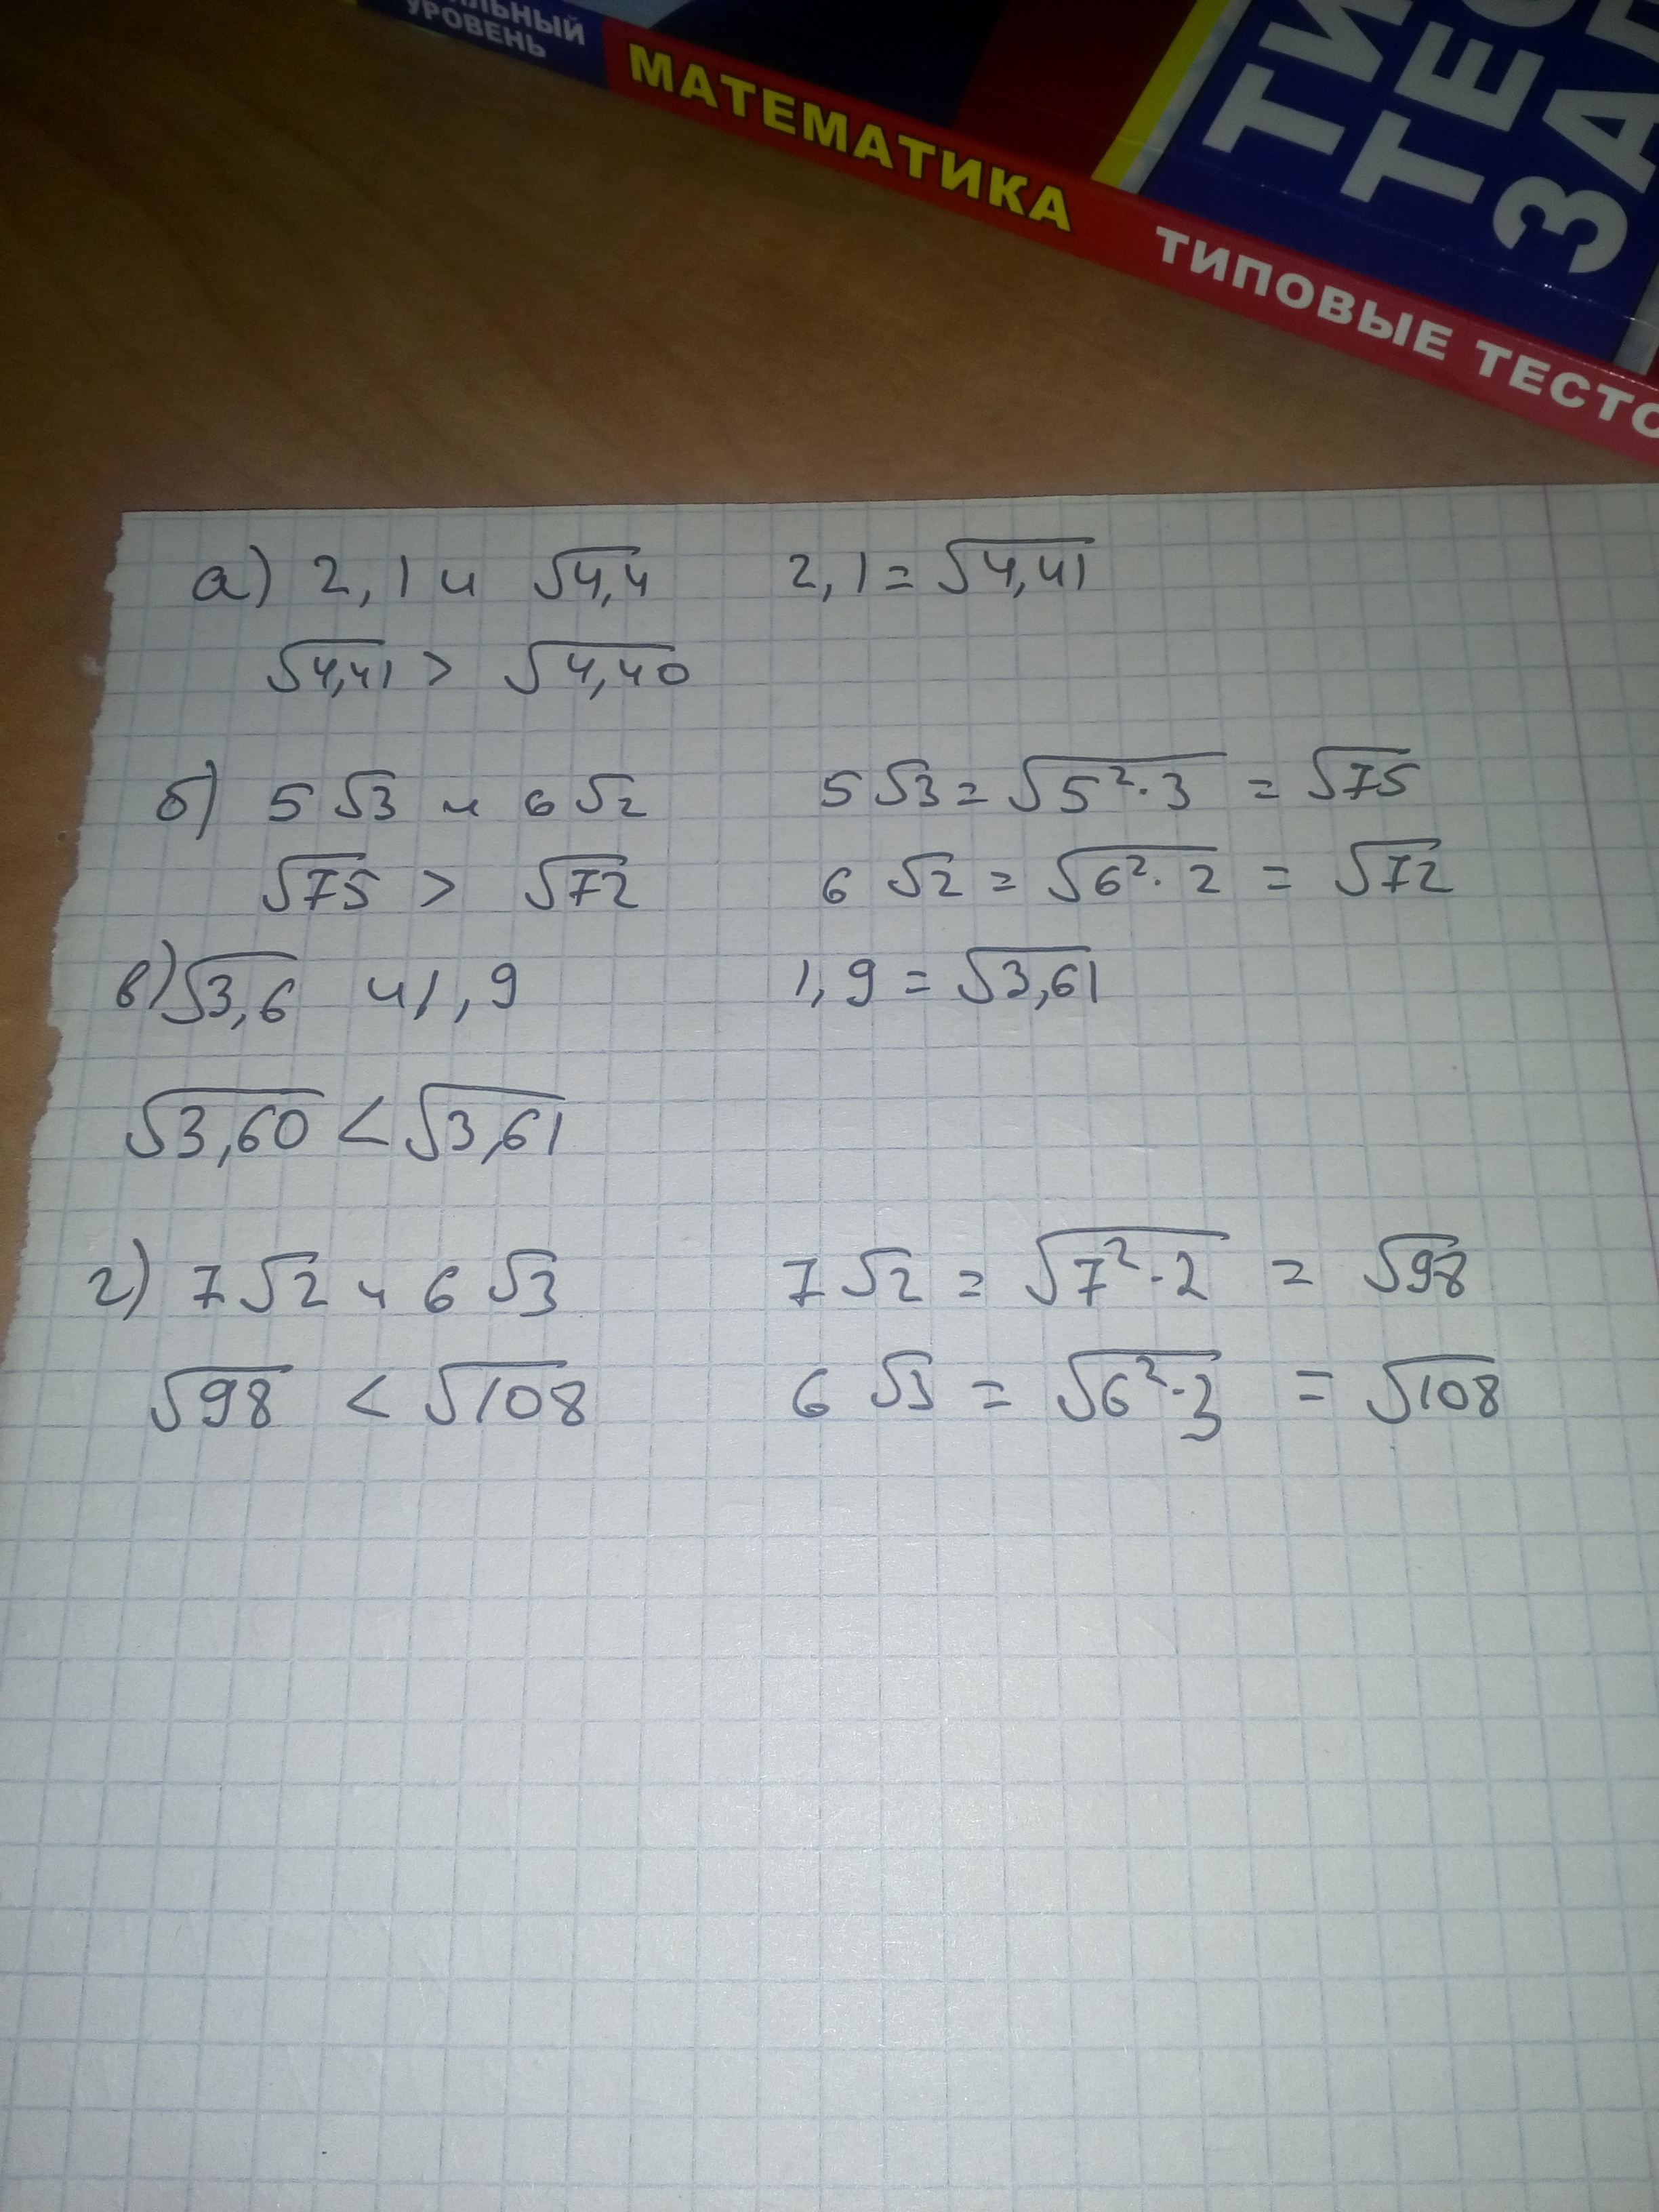 УРОВЕНЬ
МАТЕМАТИКА
ТИПОВЫЕ
а) 2,1 и √4,4 2,1 = √4,41
√4,41 > √4,40
б) 5√3 и 6√2 5√3 = √5²·3 = √75
√75 > √72 6√2 = √6²·2 = √72
в) √3,6 и 1,9 1,9 = √3,61
√3,60 < √3,61
г) 7√2 и 6√3 7√2 = √7²·2 = √98
√98 < √108 6√3 = √6²·3 = √108